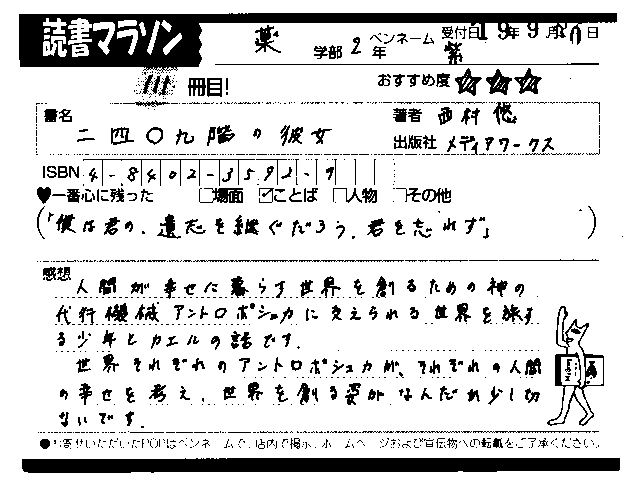 読書マラソン
薬 学部 2年 ペンネーム 紫 受付日 19年9月20日
111 冊目!
おすすめ度 ☆☆☆
書名 二四〇九階の彼女
著者 西村 悠
出版社 メディアワークス
ISBN 4-8402-3592-9
♥一番心に残った □場面 ☑ことば □人物 □その他
(「僕は君の、遺志を継ぐだろう、君を忘れず」)
感想
人間が幸せに暮らす世界を創るための神の
代行機械アントロポシュカに支えられる世界を旅す
る少年とカエルの話です.
世界それぞれのアントロポシュカが、それぞれの人間
の幸せを考え、世界を創る姿がなんだか少し切
ないです.
●お寄せいただいたPOPはペンネームで、店内で掲示、ホームページおよび宣伝物への転載をご了承ください。